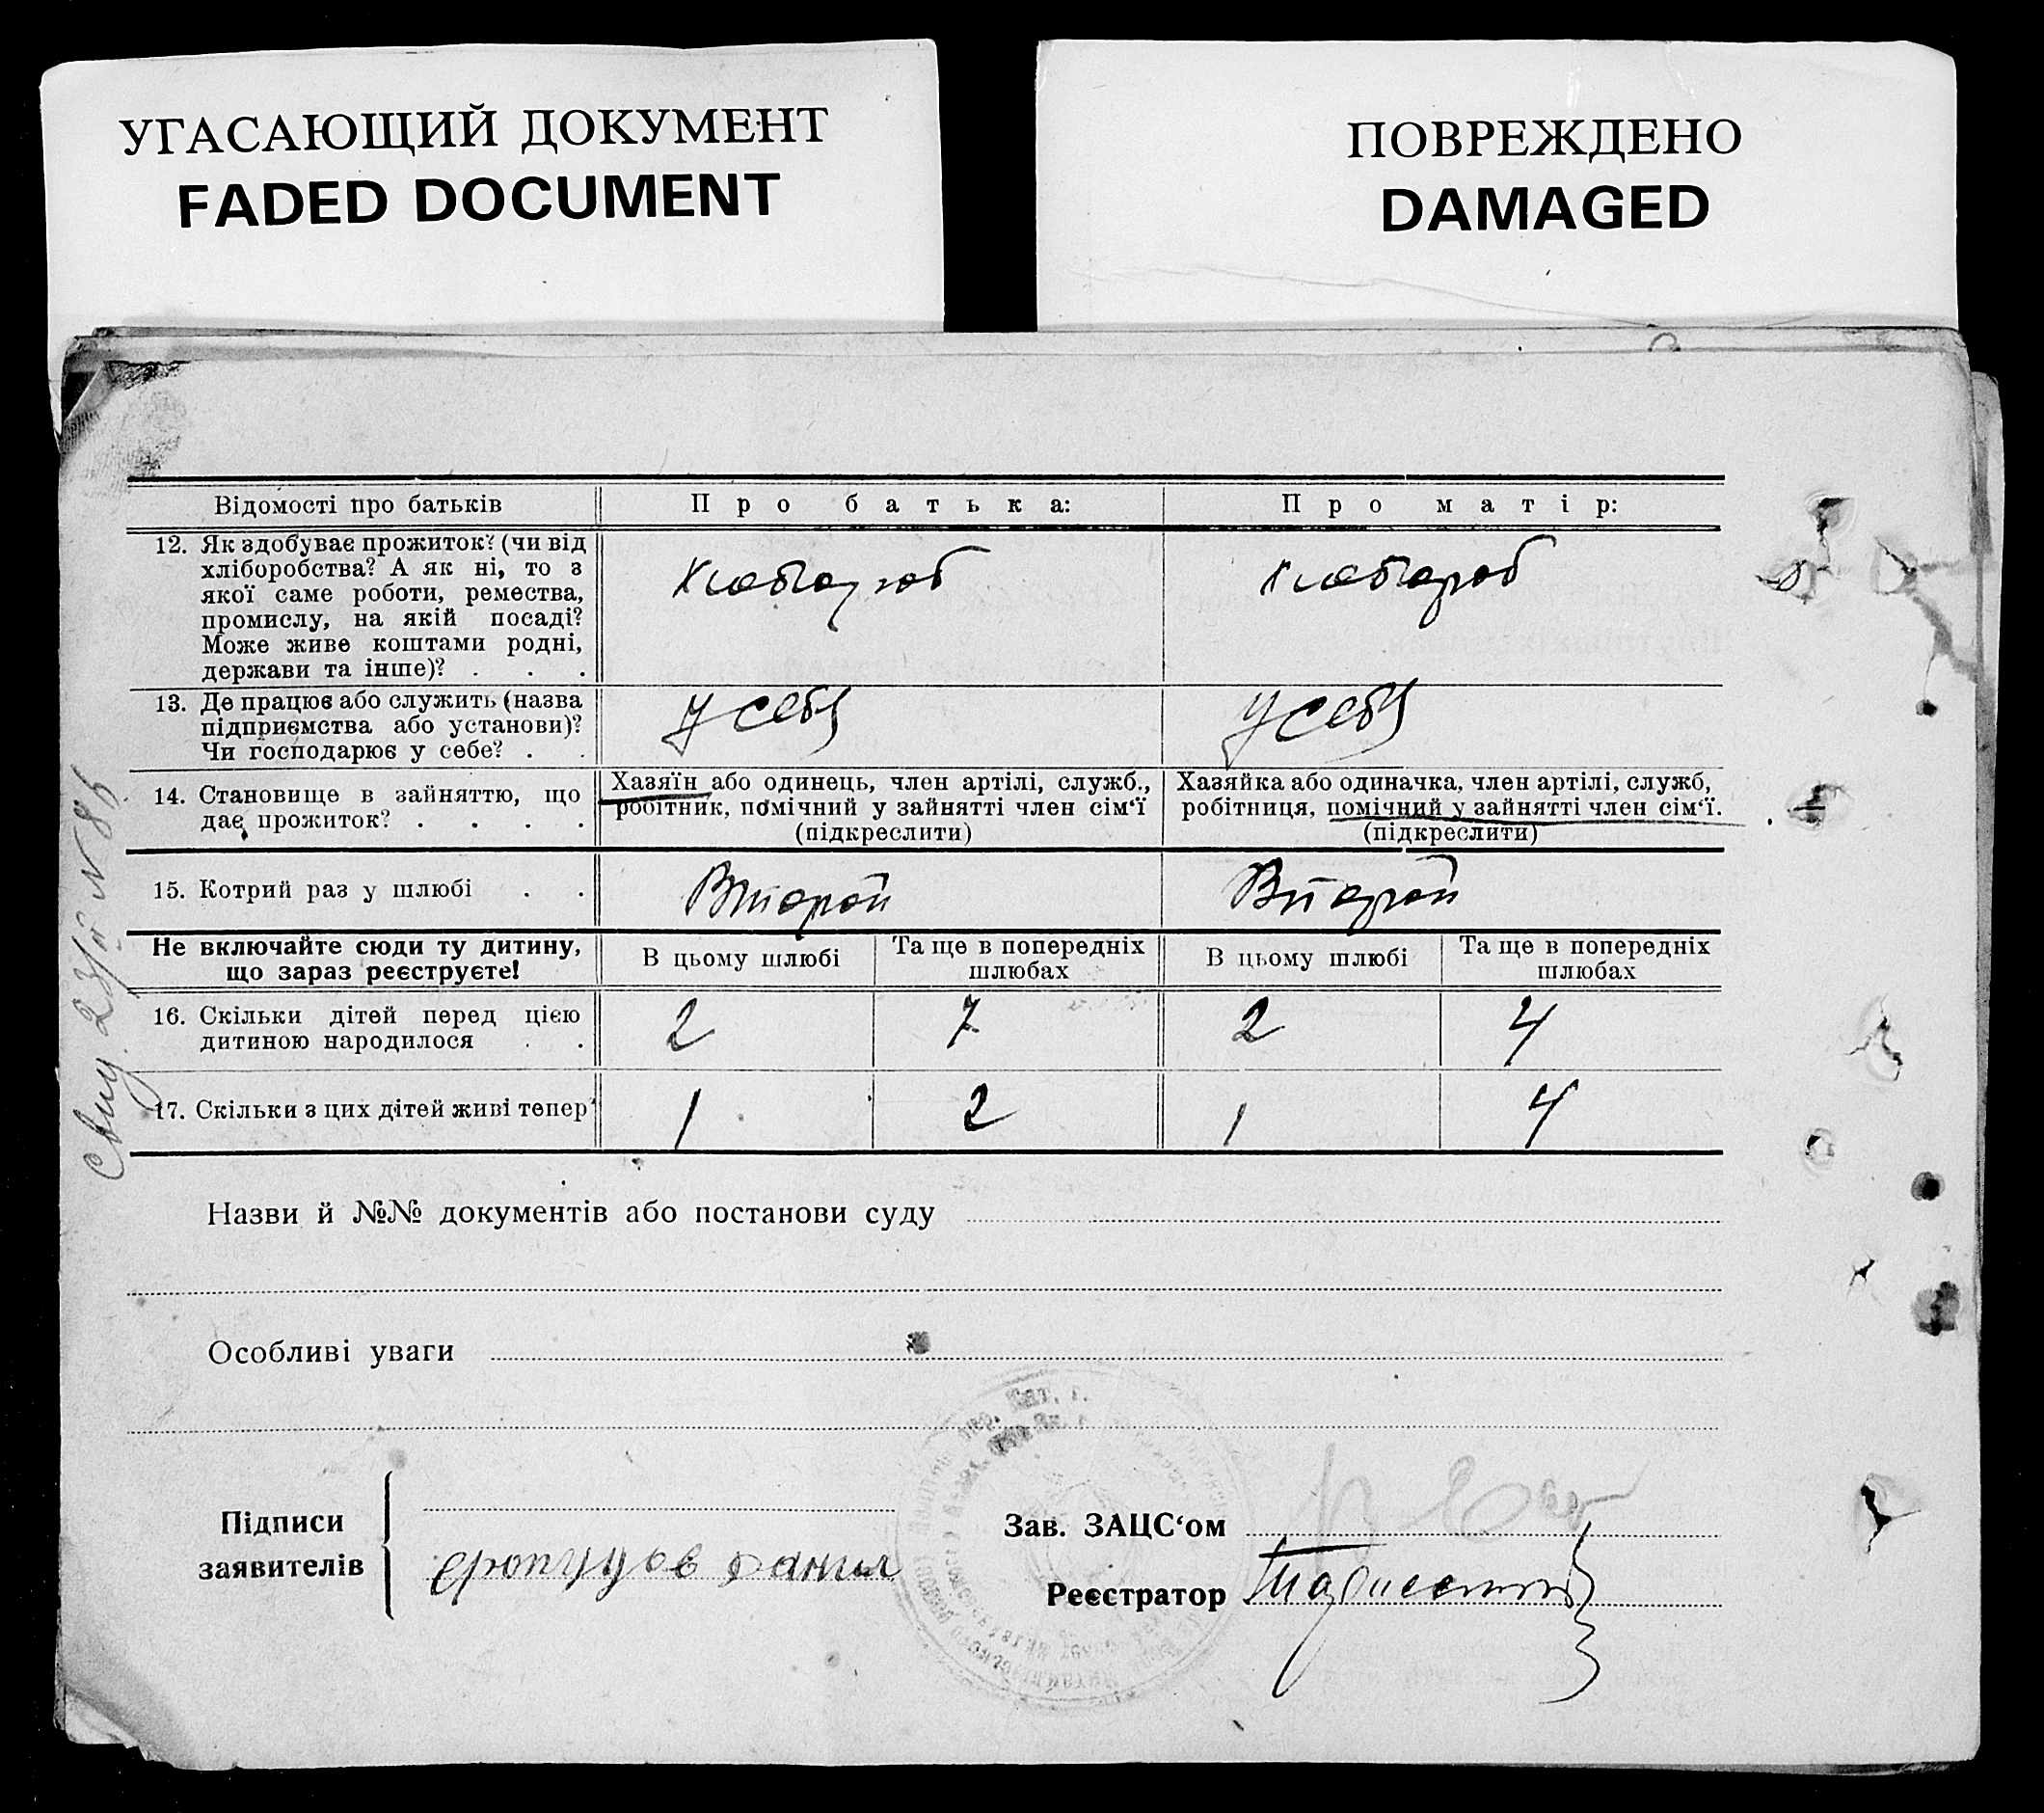 УГАСАЮЩИЙ ДОКУМЕНТ
FADED DOCUMENT
ПОВРЕЖДЕНО
DAMAGED
Відомості про батьків
Про батька:
Про матір:
12. Як здобуває прожиток? (чи від
хліборобства? А як ні, то з
якої саме роботи, ремества,
промислу, на якій посаді?
Може живе коштами родні,
держави та інше)? . . .
Хлебороб
Хлебороб
13. Де працює або служить (назва
підприємства або установи)?
Чи господарює у себе? . .
У себя
У себя
14. Становище в зайняттю, що
дає прожиток? . . . .
Хазяїн або одинець, член артілі, служб.,
робітник, помічний у зайнятті член сім‘ї
(підкреслити)
Хазяйка або одиначка, член артілі, служб,
робітниця, помічний у зайнятті член сім‘ї.
(підкреслити)
15. Котрий раз у шлюбі . .
Второй
Второй
Не включайте сюди ту дитину,
що зараз реєструєте!
В цьому шлюбі
Та ще в попередніх
шлюбах
В цьому шлюбі
Та ще в попередніх
шлюбах
16. Скільки дітей перед цією
дитиною народилося . .
2
7
2
4
17. Скільки з цих дітей живі тепер
1
2
1
4
Назви й №№ документів або постанови суду
Особливі уваги
Підписи
заявителів
Данил
Зав. ЗАЦС‘ом
Реєстратор